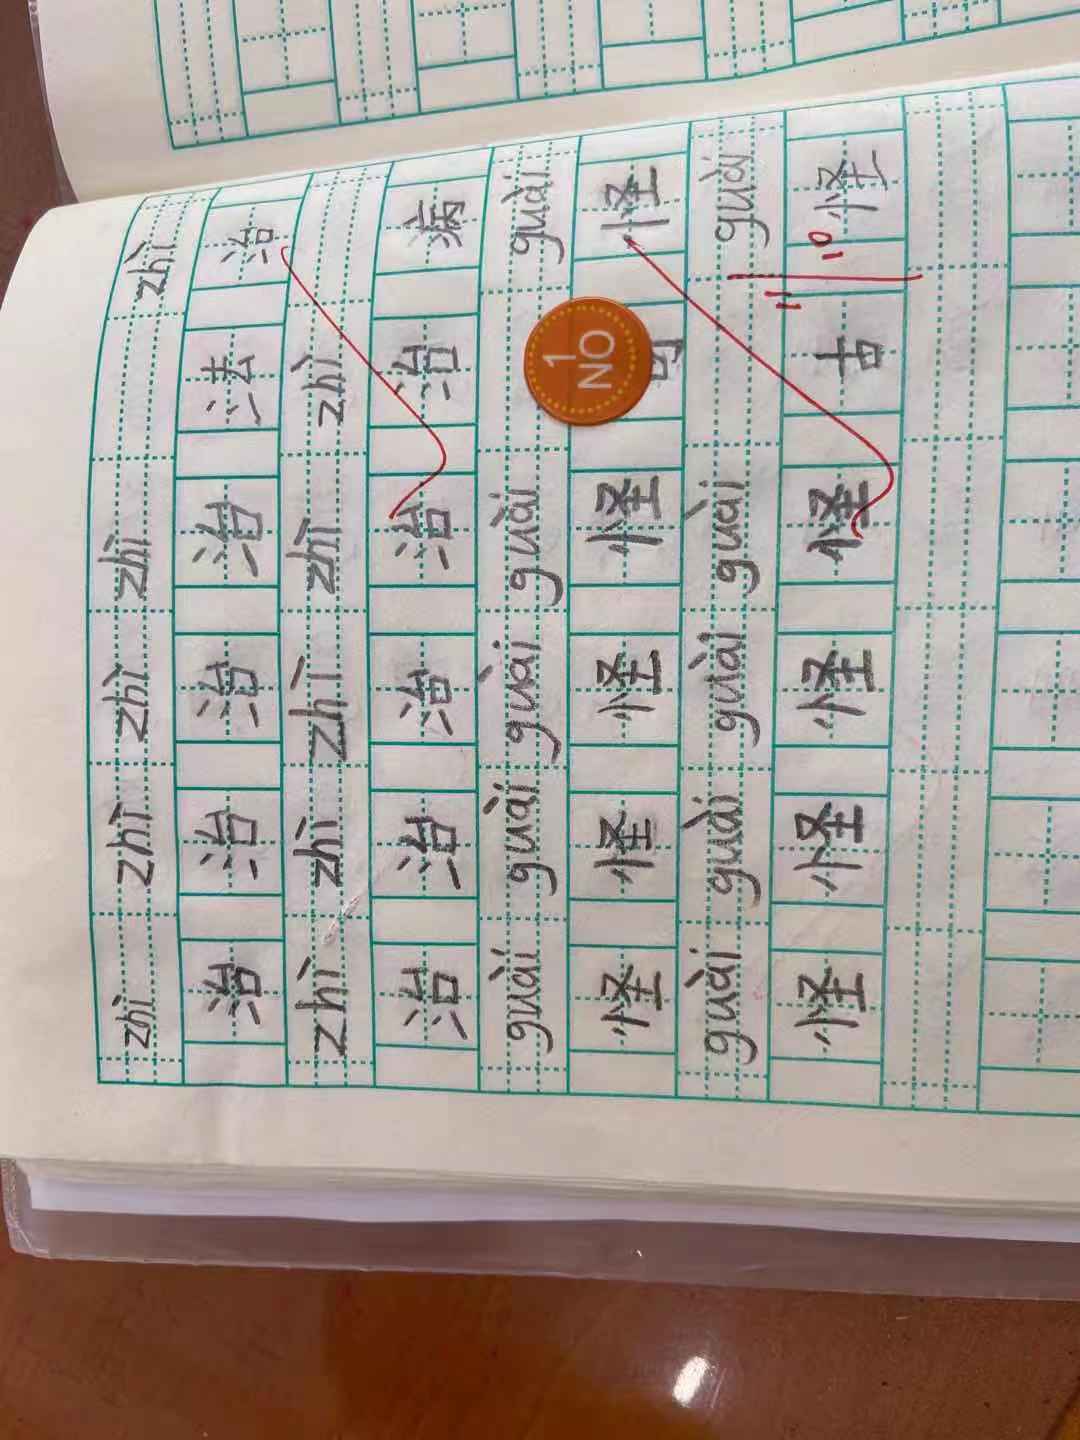 zhì zhì zhì zhì zhì
治 治 治 治 法 治
zhì zhì zhì zhì zhì
治 治 治 治 治 病
guài guài guài guài guài
怪 怪 怪 怪 怪
1
NO
guài guài guài guài guài
怪 怪 怪 怪 古 怪